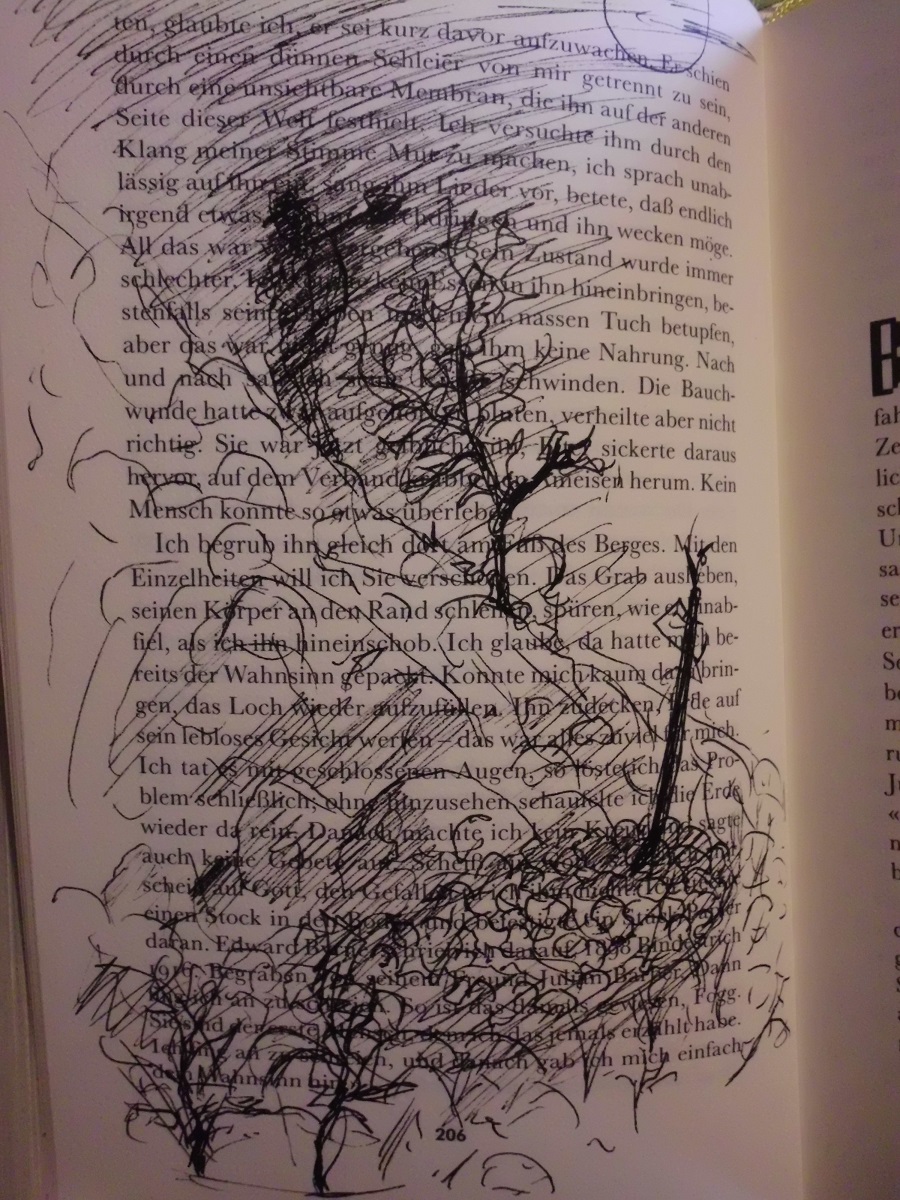 ten, glaubte ich, er sei kurz davor aufzuwachen. Er schien
durch einen dünnen Schleier von mir getrennt zu sein,
durch eine unsichtbare Membran, die ihn auf der anderen
Seite dieser Welt festhielt. Ich versuchte ihm durch den
Klang meiner Stimme Mut zu machen, ich sprach unab-
lässig auf ihn ein, sang ihm Lieder vor, betete, daß endlich
irgend etwas und ihn wecken möge.
All das war vergebens. Sein Zustand wurde immer
schlechter. kein Essen in ihn hineinbringen, be-
stenfalls seine nassen Tuch betupfen,
aber das war nicht genug, gab ihm keine Nahrung. Nach
und nach sah ich seine schwinden. Die Bauch-
wunde hatte zwar aufgehört zu bluten, verheilte aber nicht
richtig. Sie war jetzt sickerte daraus
hervor, auf dem Verband krabbelten Ameisen herum. Kein
Mensch konnte so etwas überleben.
Ich begrub ihn gleich dort am Fuß des Berges. Mit den
Einzelheiten will ich Sie verschonen. Das Grab ausheben,
seinen Körper an den Rand schleifen, spüren, wie er hinab-
fiel, als ich ihn hineinschob. Ich glaube, da hatte mich be-
reits der Wahnsinn gepackt. Konnte mich kaum dazu brin-
gen, das Loch wieder aufzufüllen. Ihn zudecken, Erde auf
sein lebloses Gesicht werfen – das war alles zuviel für mich.
Ich tat es mit geschlossenen Augen, so löste ich das Pro-
blem schließlich; ohne hinzusehen schaufelte ich die Erde
wieder da rein. Danach machte ich kein Kreuz und sagte
auch keine Gebete auf. Scheiß auf Gott,
scheiß auf Gott, den Gefallen tu ich ihm nicht. Ich
einen Stock in den Boden und befestigte ein Stück Papier
daran. Edward Byrne, schrieb ich darauf, 1898 Bindestrich
1916. Begraben von seinem Freund Julian Barber. Dann
fing ich an zu schreien. So ist das damals gewesen, Fogg.
Sie sind der erste dem ich das jemals erzählt habe.
Ich fing an zu schreien, und danach gab ich mich einfach
dem Wahnsinn hin.
206
fah
Ze
lic
sch
U
sa
se
er
Se
be
m
ru
Ju
«
n
b